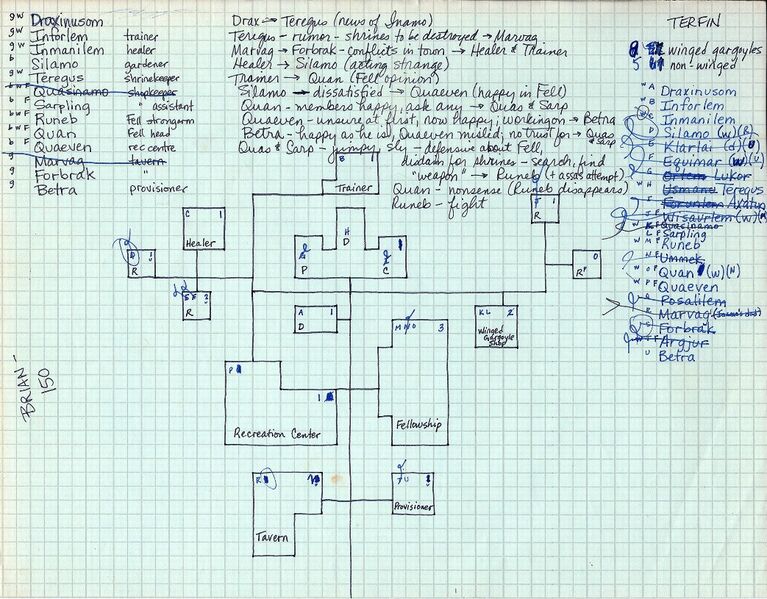 gw Draxinusom
gw Inforlem trainer
gw Inmanilem healer
b Silamo gardener
gw Teregus shrinekeeper
Quasinamo shopkeeper
b F Sarpling " assistant
bwF Runeb Fell strongarm
bwF Quan Fell head
b F Quaeven rec centre
g Marvag tavern
g Forbrak "
g Betra provisioner
Drax → Teregus (news of Inamo)
Teregus - rumor - shrines to be destroyed → Marvag
Marvag → Forbrak - conflicts in town → Healer & Trainer
Healer → Silamo (acting strange)
Trainer → Quan (Fell opinion)
Silamo - dissatisfied → Quaeven (happy in Fell)
Quan - members happy, ask any → Quas & Sarp
Quaeven - unsure at first, now happy; working on → Betra
Betra - happy as he is, Quaeven misled; no trust for → Quas & Sarp
Quas & Sarp - jumpy, sly - defensive about Fell,
disdain for shrines - search, find
"weapon" → Runeb (+ assas attempt)
Quan - nonsense (Runeb disappears)
Runeb - fight
TERFIN
winged gargoyles
5 non-winged
w A Draxinusom
w B Inforlem
C Inmanilem
D Silamo (w)(R)
E Klarlai (d)(U)
F Equimar (w)(U)
G Ortem Lukor
w H Usmane Teregus
Forunlem Avatus
J Wisaurlem (w)
K Quasinamo
L F Sarpling
w M F Runeb
N F Ummek
w O F Quan (w)(H)
w P F Quaeven
Posalilem
R Marvag
Forbrak
Argjur
U Betra
B 1
Trainer
C 1
Healer
R
R 3
H
D
P
C
F 1
R
R 0
A 1
D
K L 2
Winged Gargoyle Shop
M N O 3
Fellowship
P
1
Recreation Center
R
Tavern
T U
Provisioner
BRIAN -
150